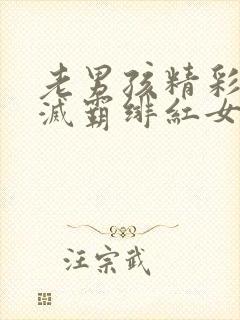 老男孩精彩
滅霸緋紅女
汪宗武